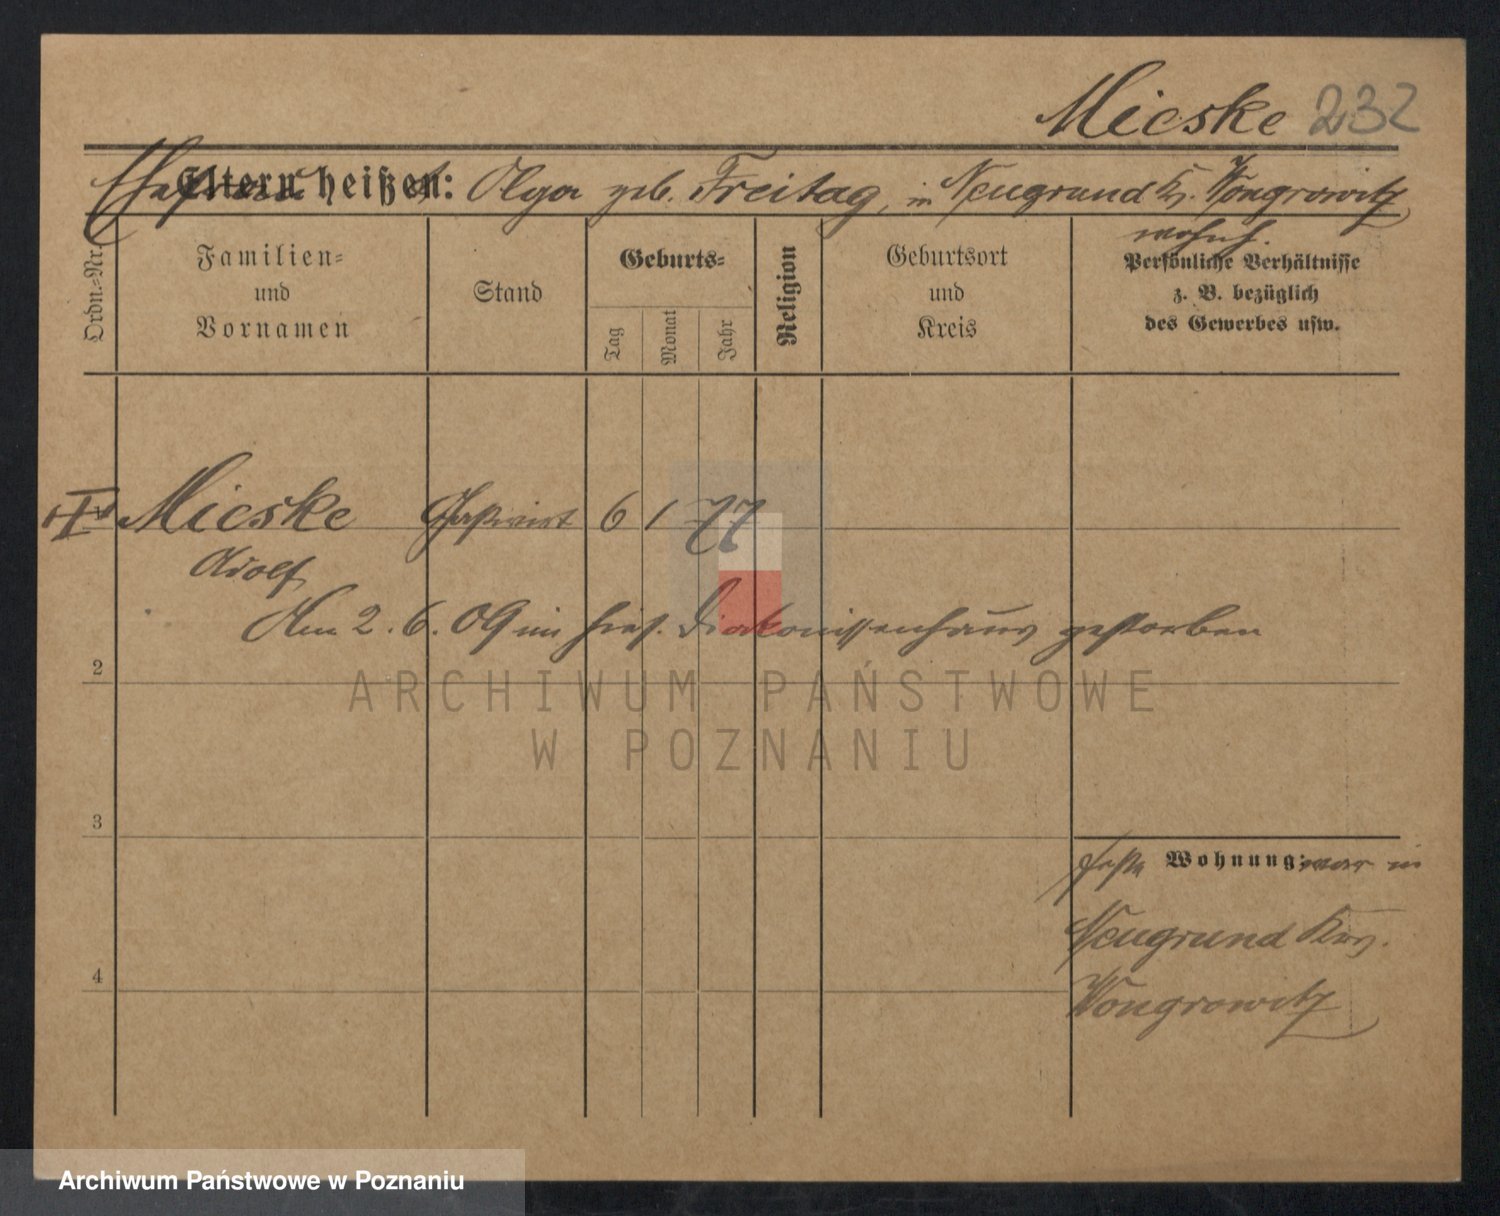 Micske 232
Eltern heißen: Olga geb. Freitag, in Neugrund Kr. Wongrowitz
wohnh.
Ordn.-Nr.
Familien-
und
Vornamen
Stand
Geburts-
Tag
Monat
Jahr
Religion
Geburtsort
und
Kreis
Persönliche Verhältnisse
z. B. bezüglich
des Gewerbes usw.
I Micske Gastwirt 6 1 77
Adolf
Am 2. 6. 09 im hies. Diakonissenhaus gestorben
2
ARCHIWUM PAŃSTWOWE
W POZNANIU
3
feste Wohnung: war in
Neugrund Krs.
4
Wongrowitz
Archiwum Państwowe w Poznaniu